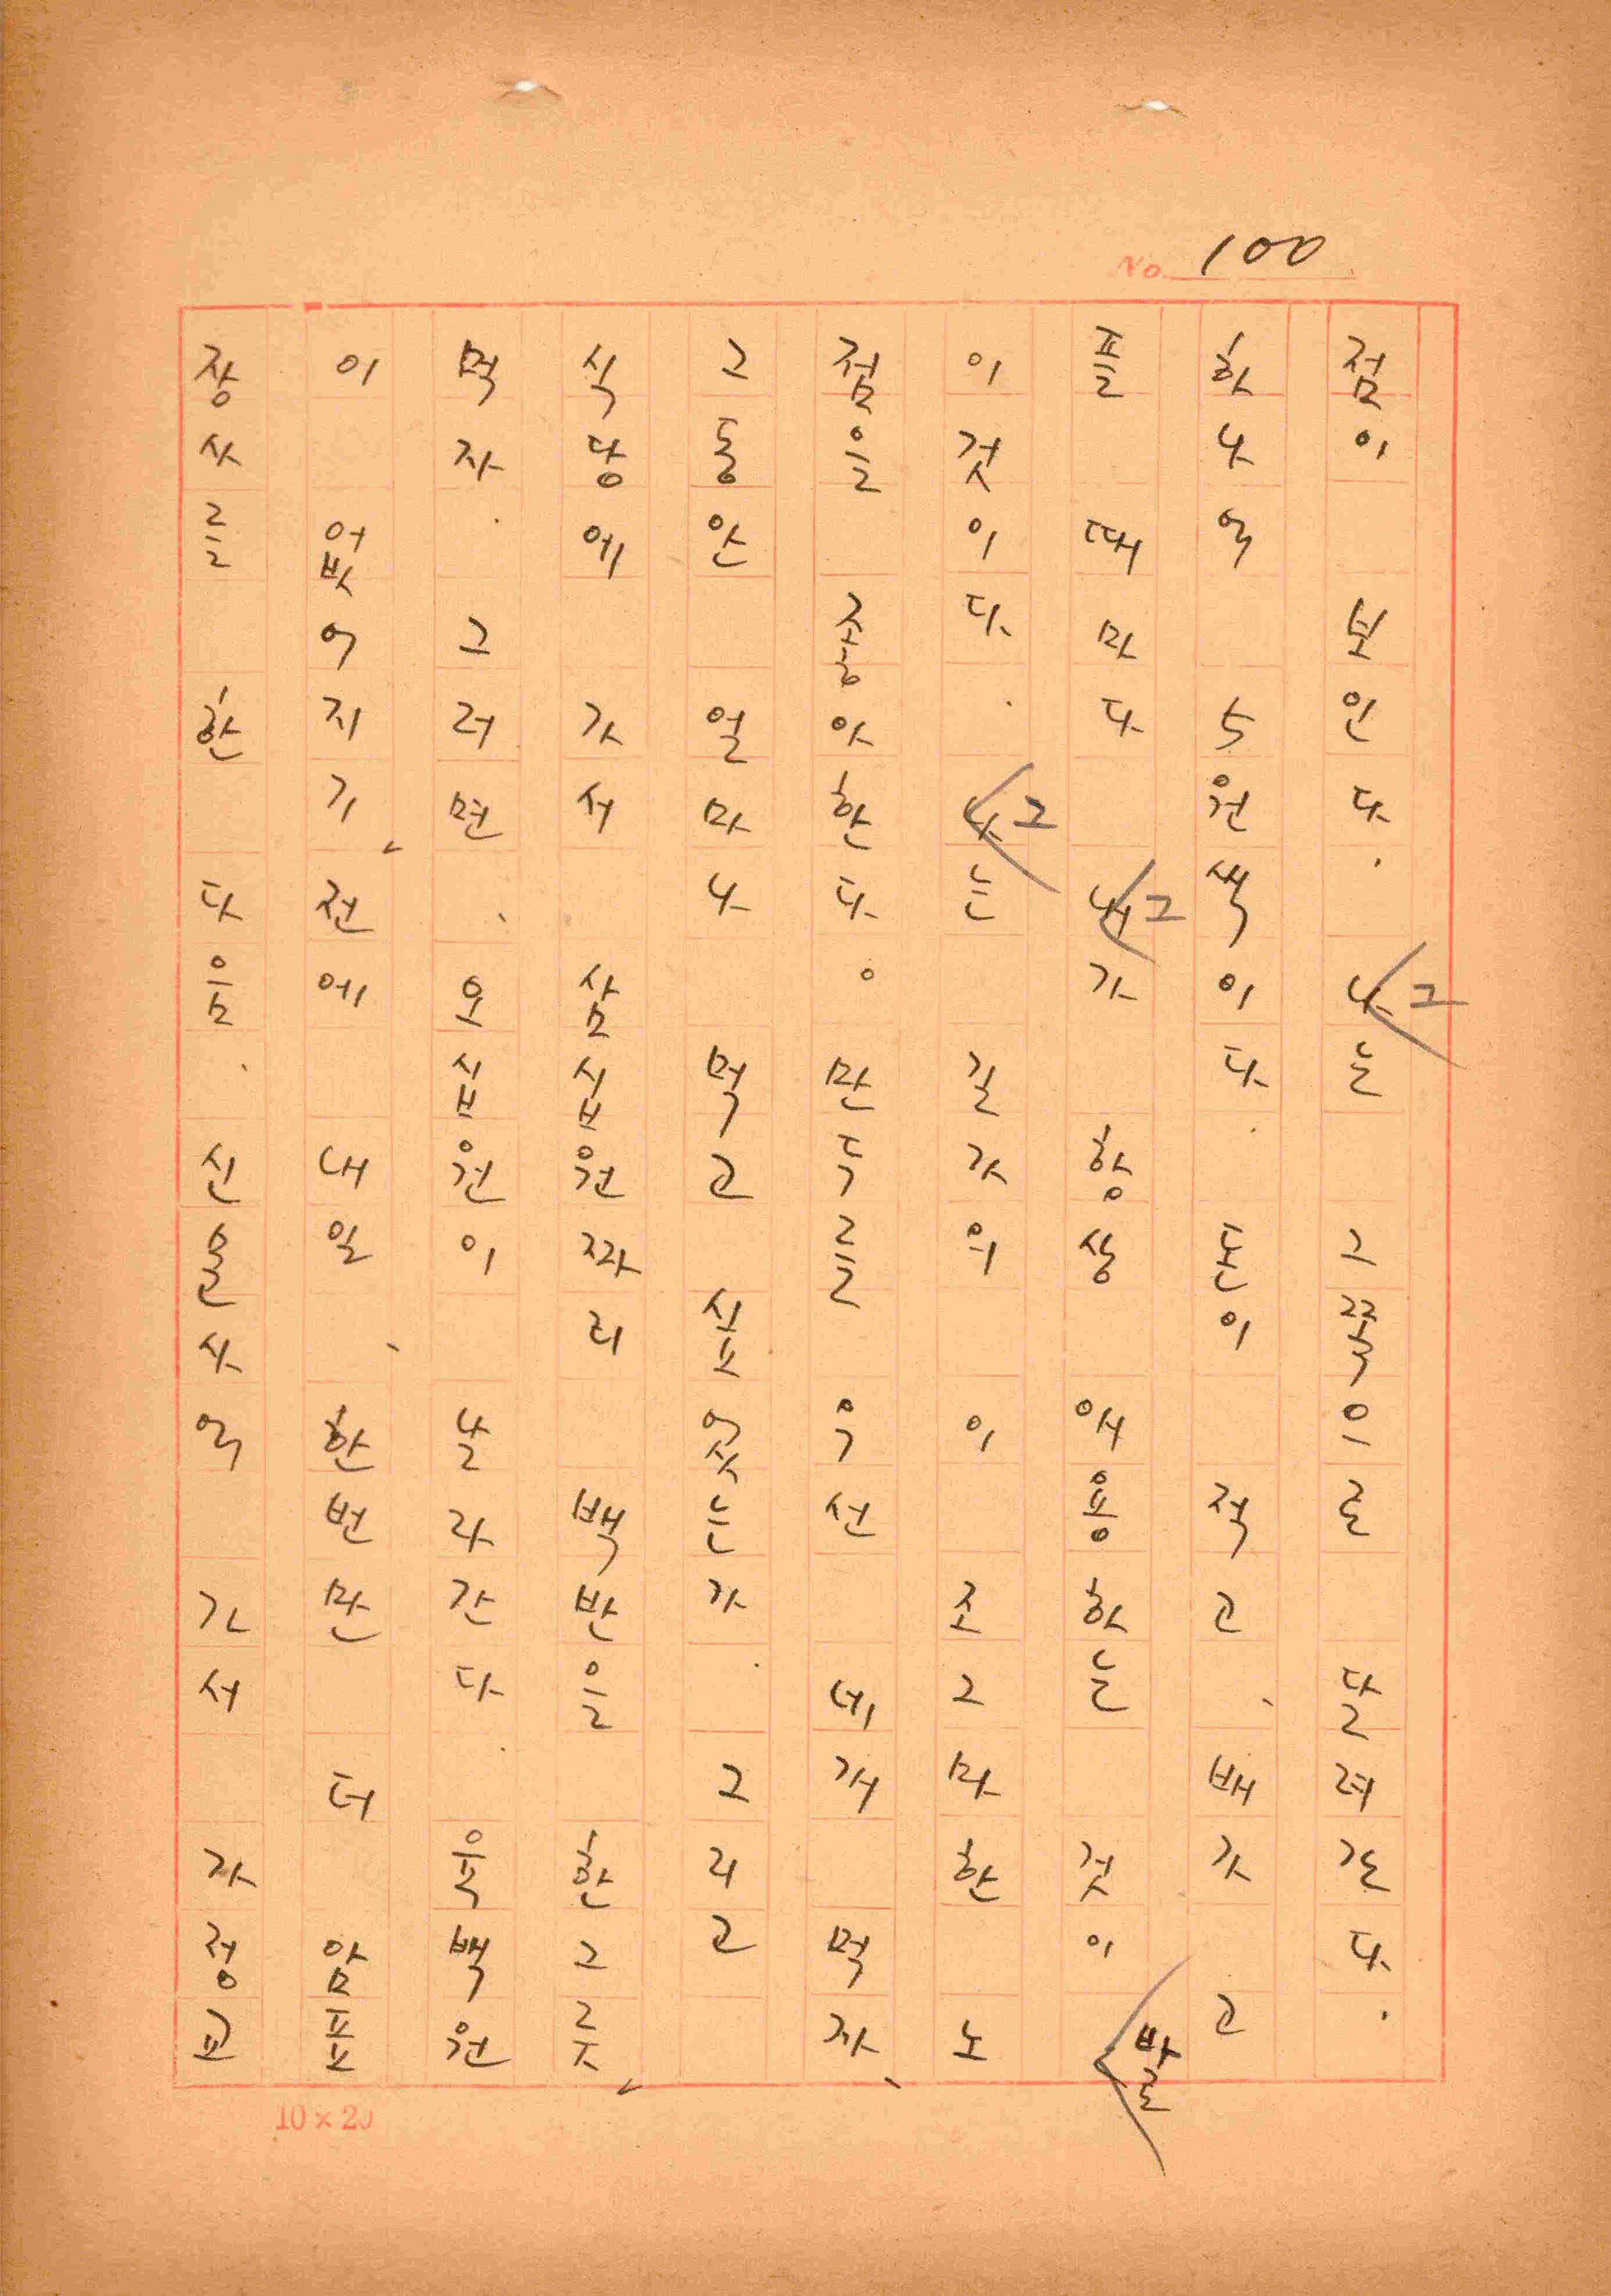 No. 100
점이 보인다. 나 그는 그쪽으로 달려간다.
하나에 5원씩이다. 돈이 적고, 배가 고
플 때마다 내 그가 항상 애용하는 것이 바로
이것이다. 나 그는 길가의 이 조그마한 노
점을 좋아한다. 만두를 우선 네개 먹자,
그동안 얼마나 먹고 싶었는가. 그리고
식당에 가서 삼십원짜리 백반을 한그릇,
먹자. 그러면, 오십원이 날라간다. 육백원
이 없어지기, 전에 내일, 한번만 더 암표
장사를 한 다음. 신문사에 가서 자정교
10×20